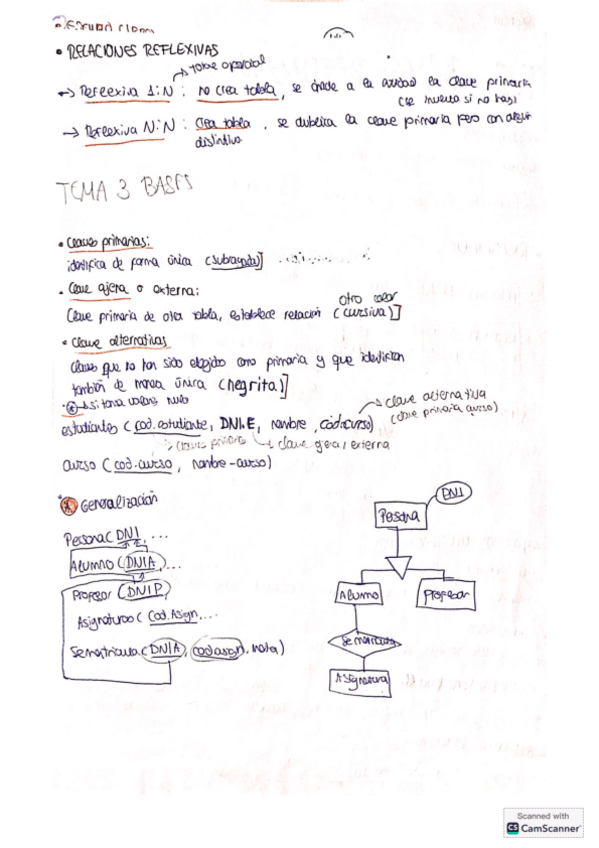 • RELACIONES REFLEXIVAS
→ Reflexiva 1:N : no crea tabla, se añade a la entidad la clave primaria
(se inventa si no hay)
→ Reflexiva N:N : crea tabla, se duplica la clave primaria pero con algún
distintivo
TEMA 3 BASES
• Claves primarias:
identifica de forma única (subrayado)]
• Clave ajena o externa:
Clave primaria de otra tabla, establece relación (cursiva)]
otro color
• Clave alternativas
claves que no han sido elegido como primaria y que identifican
también de manera única (negrita)]
si toma valores nulo
estudiantes (cod.estudiante, DNI.E, nombre, cod.curso)
→ clave alternativa
(clave primaria curso)
clave primaria
clave ajena / externa
curso (cod.curso, nombre-curso)
* Generalización
Persona (DNI, ...
Alumno (DNIA, ...
Profesor (DNIP)
Asignaturas (Cod.Asign, ...
Sematricula (DNIA, cod.asign, nota)
DNI
Persona
Alumno
Profesor
Se matricula
Asignatura
Scanned with
CS CamScanner